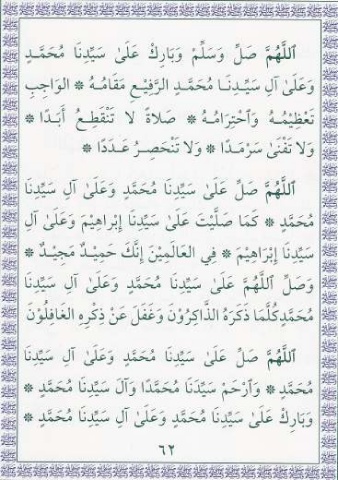 اَللَّهُمَّ صَلِّ وَسَلِّمْ وَبَارِكْ عَلَىٰ سَيِّدِنَا مُحَمَّدٍ
وَعَلَىٰ آلِ سَيِّدِنَا مُحَمَّدٍ الرَّفِيعِ مَقَامُهُ ۞ الوَاجِبِ
تَعْظِيمُهُ وَٱحْتِرَامُهُ ۞ صَلَاةً لَا تَنْقَطِعُ أَبَدًا ۞
وَلَا تَفْنَىٰ سَرْمَدًا ۞ وَلَا تَنْحَصِرُ عَدَدًا ۞
اَللَّهُمَّ صَلِّ عَلَىٰ سَيِّدِنَا مُحَمَّدٍ وَعَلَىٰ آلِ سَيِّدِنَا
مُحَمَّدٍ ۞ كَمَا صَلَّيْتَ عَلَىٰ سَيِّدِنَا إِبْرَاهِيمَ وَعَلَىٰ آلِ
سَيِّدِنَا إِبْرَاهِيمَ ۞ فِي العَالَمِينَ إِنَّكَ حَمِيدٌ مَجِيدٌ ۞
وَصَلِّ ٱللَّهُمَّ عَلَىٰ سَيِّدِنَا مُحَمَّدٍ وَعَلَىٰ آلِ سَيِّدِنَا
مُحَمَّدٍ كُلَّمَا ذَكَرَهُ الذَّاكِرُونَ وَغَفَلَ عَنْ ذِكْرِهِ الغَافِلُونَ
اَللَّهُمَّ صَلِّ عَلَىٰ سَيِّدِنَا مُحَمَّدٍ وَعَلَىٰ آلِ سَيِّدِنَا
مُحَمَّدٍ ۞ وَٱرْحَمْ سَيِّدَنَا مُحَمَّدًا وَآلَ سَيِّدِنَا مُحَمَّدٍ ۞
وَبَارِكْ عَلَىٰ سَيِّدِنَا مُحَمَّدٍ وَعَلَىٰ آلِ سَيِّدِنَا مُحَمَّدٍ ۞
٦٢